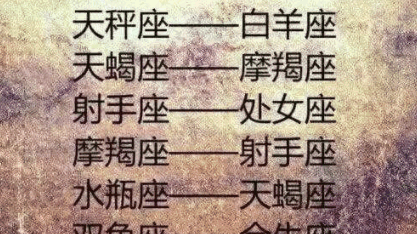 天秤座——白羊座
天蝎座——摩羯座
射手座——处女座
摩羯座——射手座
水瓶座——天蝎座
双鱼座——金牛座